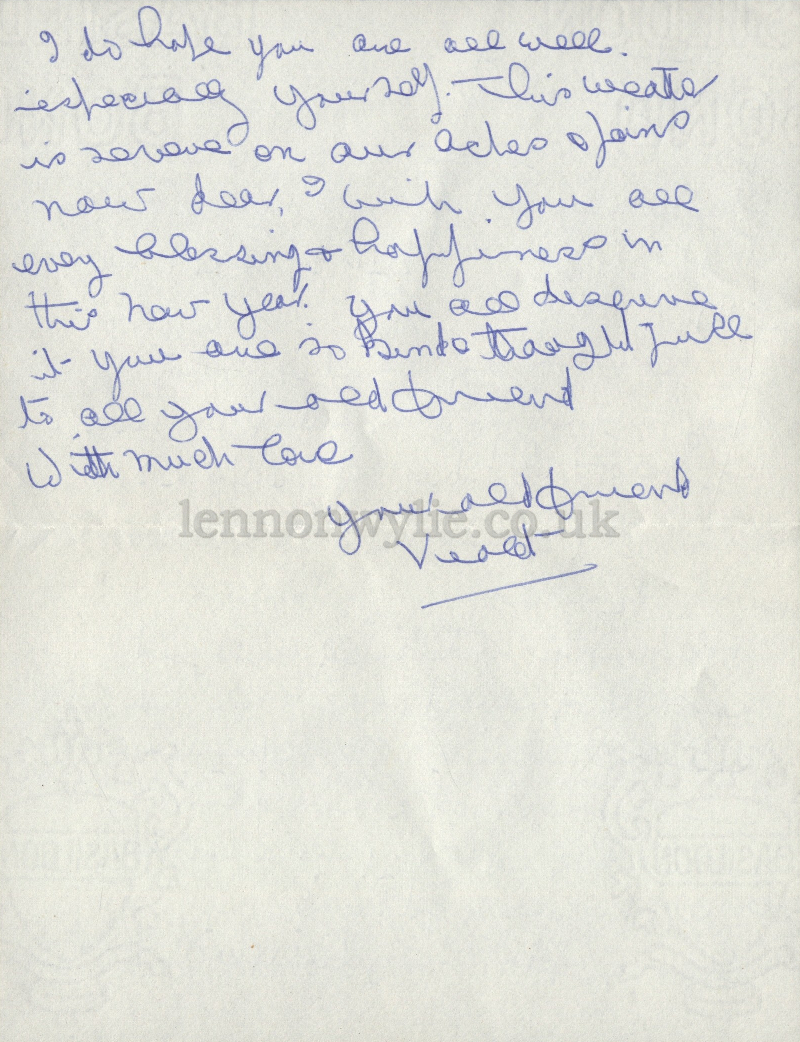 I do hope you are all well.
especially yourself. This weather
is severe on our aches & pains
now dear, I wish you all
every blessing & happiness in
this new year. You all deserve
it you are so kind & thoughtfull
to all your old friend
With much love
your old friend
lennonwylie.co.uk